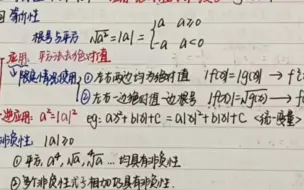 等价性
根号与平方 √a² = |a| = { a a≥0
-a a<0
应用: 平方法去绝对值
限制情况使用 ①左右两边均为绝对值 |f(x)| = |g(x)| → f²
②左右一边绝对值一边根号 |f(x)| = √g(x) → f
逆应用: a² = |a|² eg: ax² + b|x| + c = a|x|² + b|x| + c
非负性 |a| ≥ 0
①平方, a⁴, √a, ∜a ... 均具有非负性.
②多个非负性式子相加仍具有非负性.